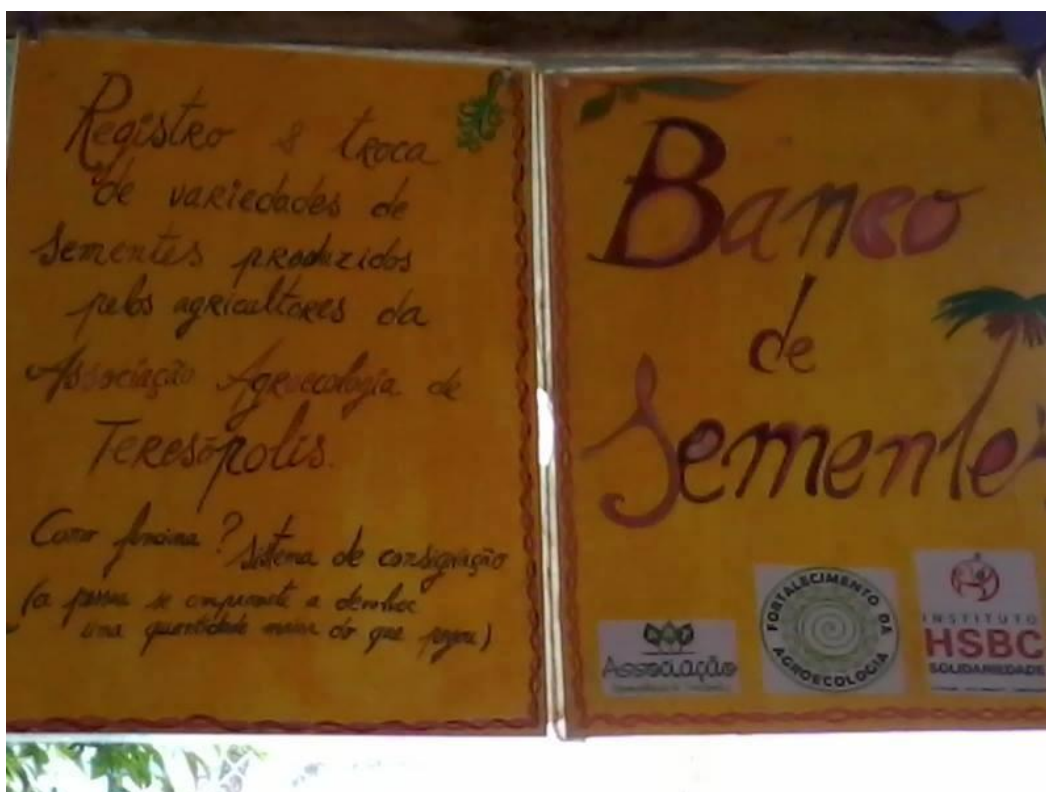 Registro & troca
de variedades de
sementes produzidos
pelos agricultores da
Associação Agroecologia de
Teresópolis.
Como funciona? Sistema de consignação
(a pessoa se compromete a devolver
uma quantidade maior do que pegou)
Banco
de
Sementes
Associação
FORTALECIMENTO DA
AGROECOLOGIA
INSTITUTO
HSBC
SOLIDARIEDADE